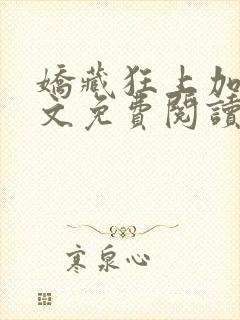 嬌藏狂上加
文免費閱讀
寒泉心